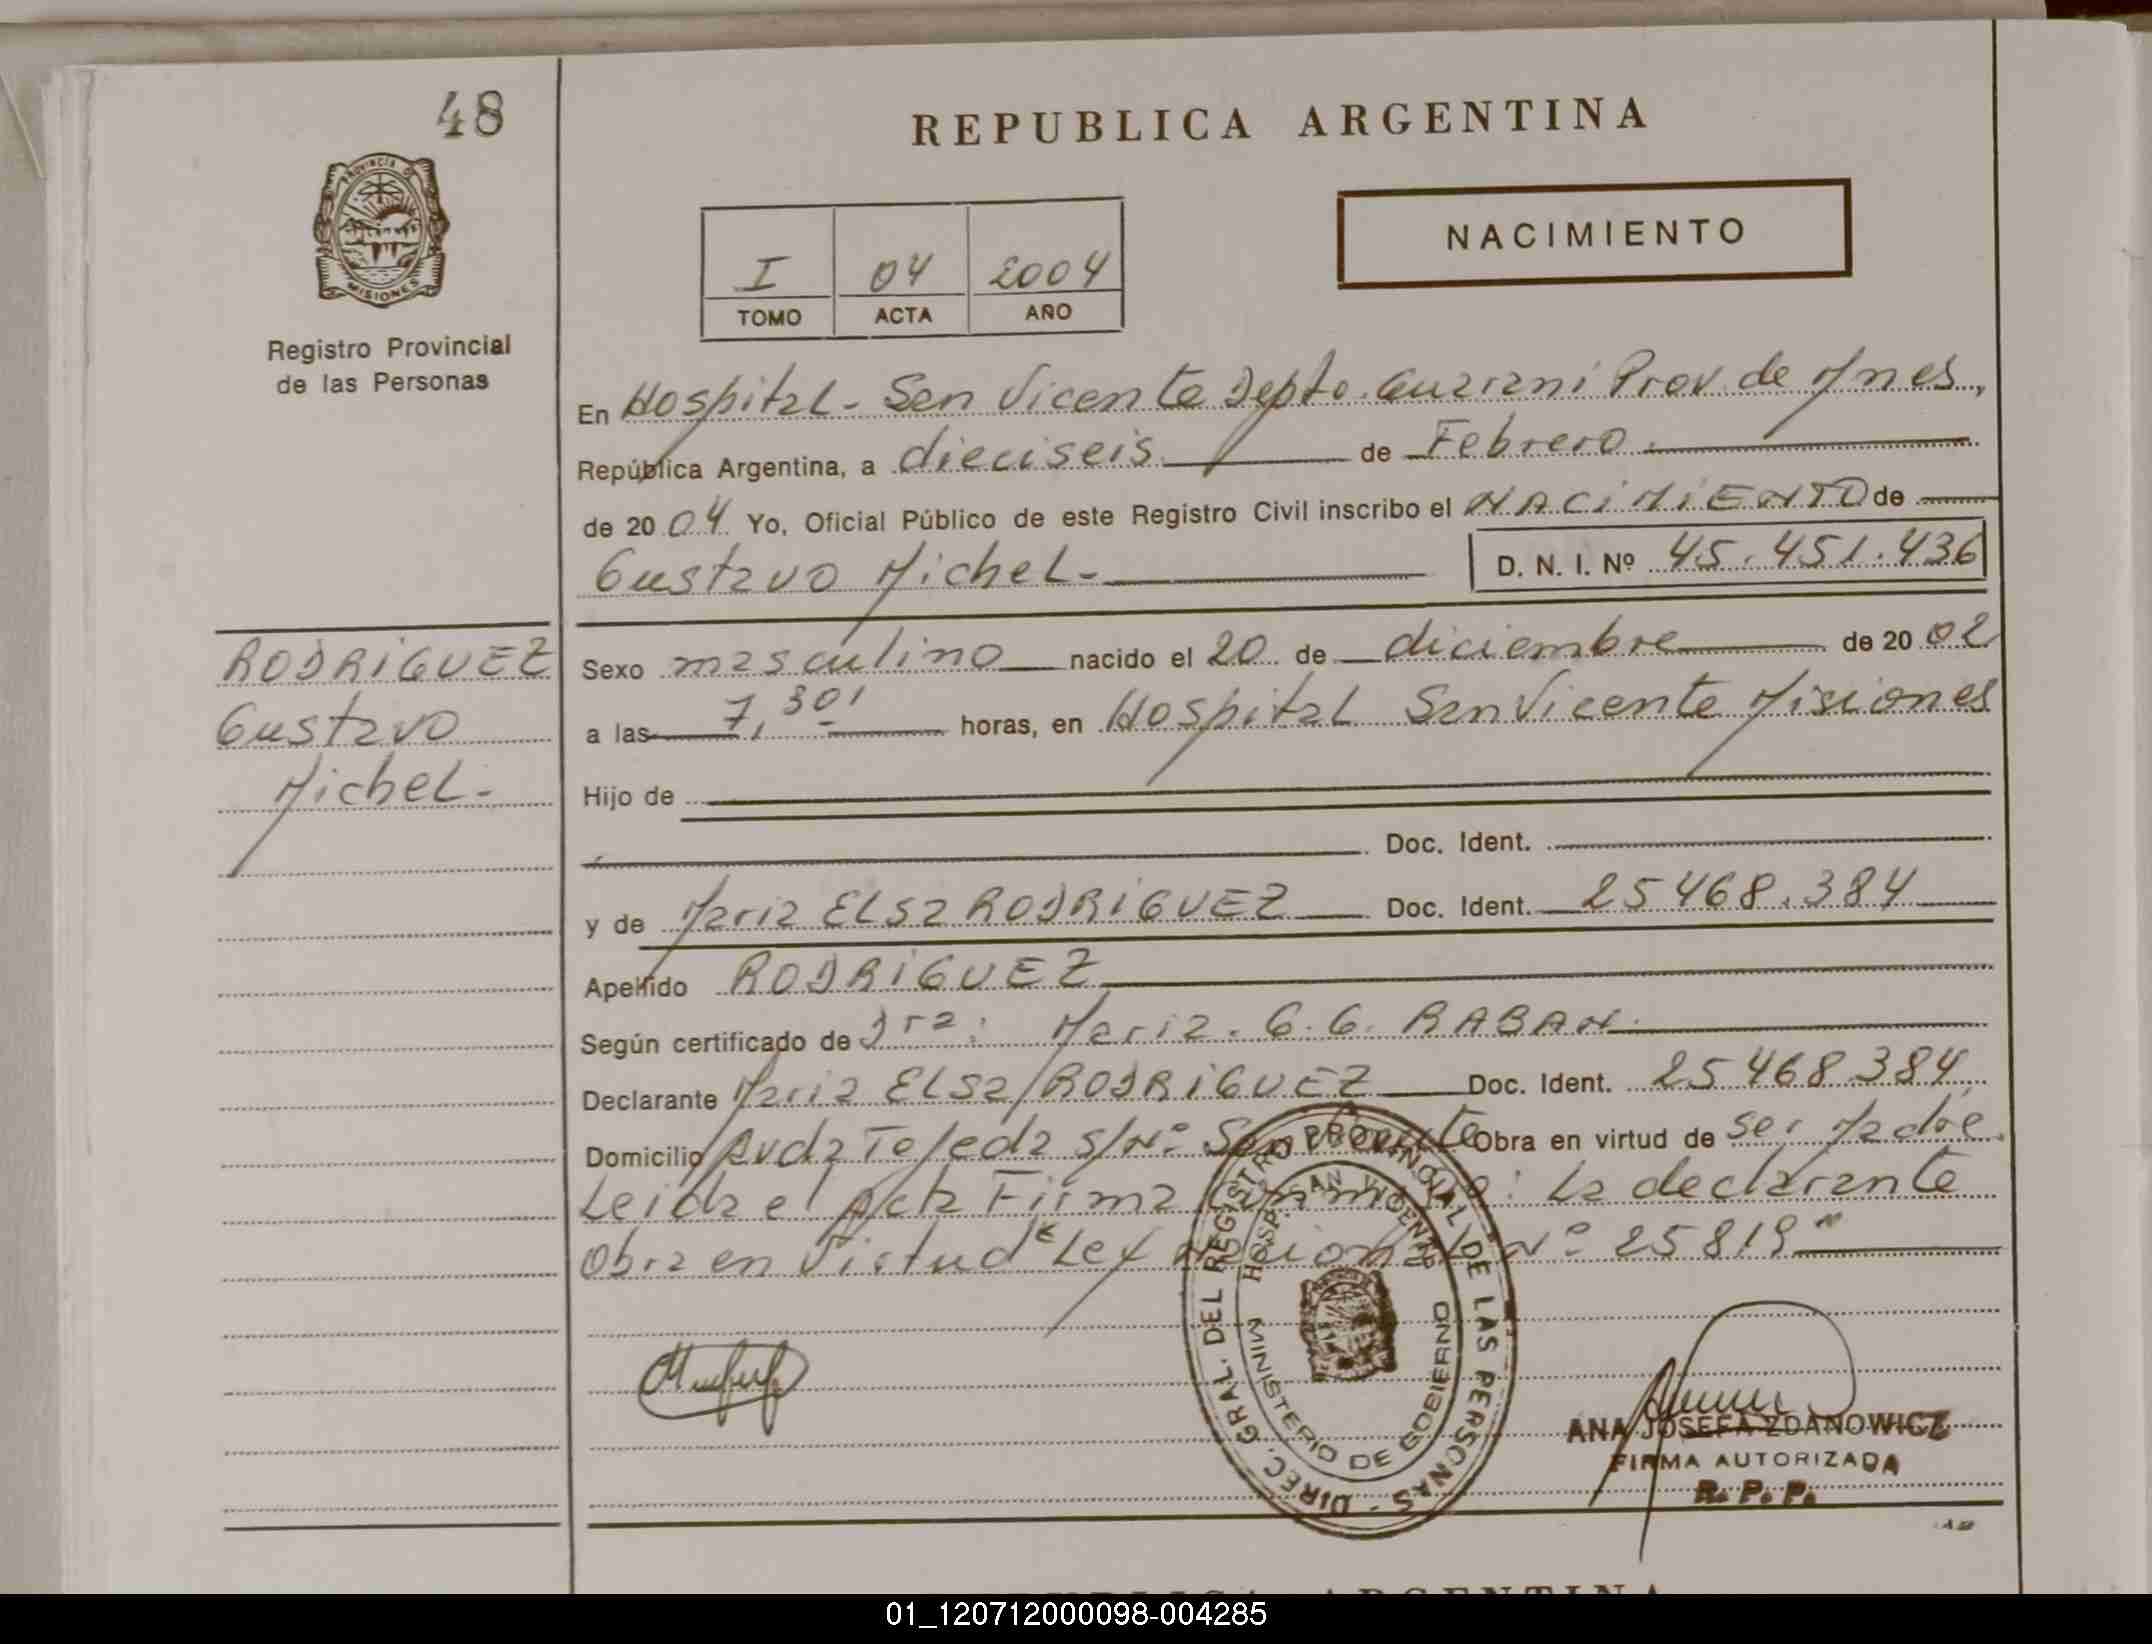 48
REPUBLICA ARGENTINA
PROVINCIA DE
MISIONES
Registro Provincial
de las Personas
NACIMIENTO
I 04 2004
TOMO ACTA AÑO
En Hospital - San Vicente Depto. Guarani Prov. de Mnes,
República Argentina, a dieciseis de Febrero.
de 2004 Yo, Oficial Público de este Registro Civil inscribo el NACIMIENTO de
Gustavo Michel - D. N. I. Nº 45.451.436
RODRIGUEZ
Gustavo
Michel -
Sexo masculino nacido el 20 de diciembre de 2002
a las 7,30' horas, en Hospital San Vicente Misiones
Hijo de
Doc. Ident.
y de Maria ELSA RODRIGUEZ Doc. Ident. 25468.384
Apellido RODRIGUEZ
Según certificado de Dra: Maria. G. G. RABAN.
Declarante Maria ELSA RODRIGUEZ Doc. Ident. 25468384
Domicilio Avda Tejeda s/Nº San Vicente Obra en virtud de ser Madre.
Leida el Acta Firma Conmigo: La declarante
Obra en Virtud Ley Nacional Nº 25819"
DIREC. GRAL. DEL REGISTRO PROVINCIAL DE LAS PERSONAS -
HOSP. SAN VICENTE
MINISTERIO DE GOBIERNO
ANA JOSEFA ZDANOWICZ
FIRMA AUTORIZADA
R. P. P.
REPUBLICA ARGENTINA
01_120712000098-004285